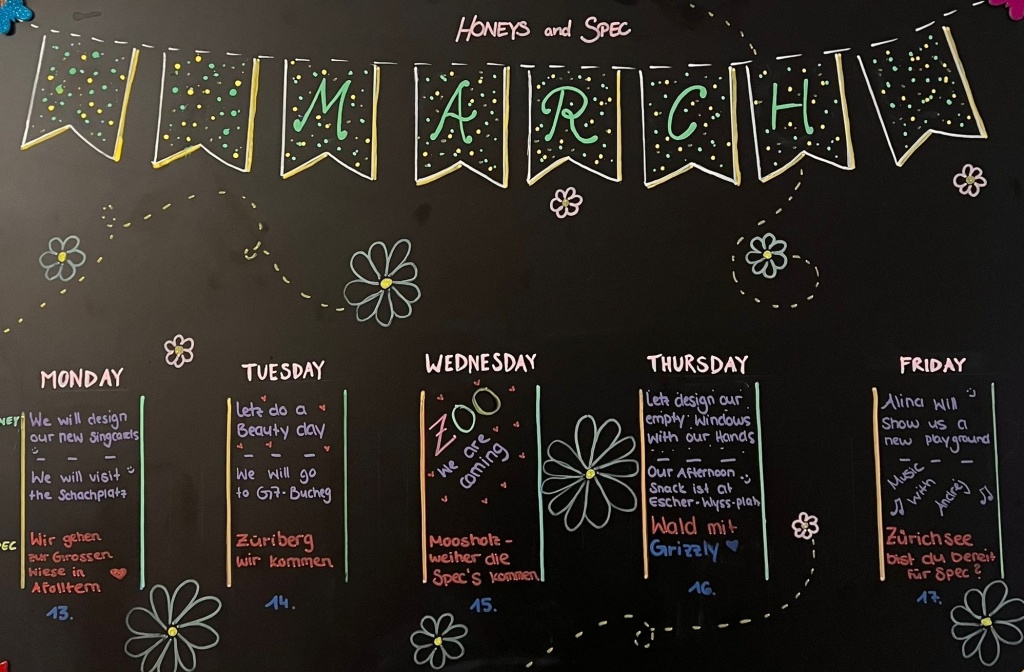 HONEYS and SPEC
MARCH
MONDAY
We will design
our new Singcards
We will visit
the Schachplatz
Wir gehen
zur Grossen
Wiese in
Afolltern
13.
TUESDAY
Letz do a
Beauty day
We will go
to GZ-Bucheg
Züriberg
wir kommen
14.
WEDNESDAY
ZOO
we are
coming
Moosholz-
weiher die
Spec's kommen
15.
THURSDAY
Letz design our
empty Windows
with our Hands
Our Afternoon
Snack ist at
Escher-Wyss-platz
Wald mit
Grizzly
16.
FRIDAY
Alina will
Show us a
new playground
Music
with
Andrej
Zürichsee
bist du bereit
für Spec?
17.